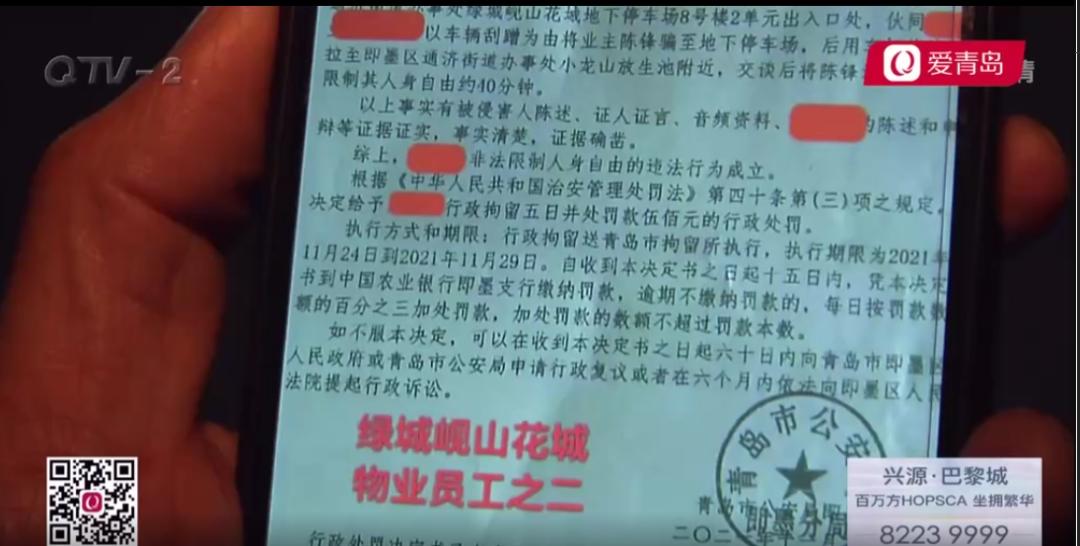 事处绿城岘山花城地下停车场8号楼2单元出入口处，伙同
以车辆刮蹭为由将业主陈锋骗至地下停车场，后用
QTV-2
爱青岛
拉至即墨区通济街道办事处小龙山放生池附近，交谈后将陈锋
限制其人身自由约40分钟。
以上事实有被侵害人陈述、证人证言、音频资料、
的陈述和申
辩等证据证实，事实清楚，证据确凿。
综上，
非法限制人身自由的违法行为成立。
根据《中华人民共和国治安管理处罚法》第四十条第(三)项之规定，
决定给予
行政拘留五日并处罚款伍佰元的行政处罚。
执行方式和期限：行政拘留送青岛市拘留所执行，执行期限为2021年
11月24日到2021年11月29日。自收到本决定书之日起十五日内，凭本决定
书到中国农业银行即墨支行缴纳罚款，逾期不缴纳罚款的，每日按罚款数
额的百分之三加处罚款，加处罚款的数额不超过罚款本数。
如不服本决定，可以在收到本决定书之日起六十日内向青岛市即墨区
人民政府或青岛市公安局申请行政复议或者在六个月内依法向即墨区人民
法院提起行政诉讼。
绿城岘山花城
物业员工之二
青岛市公安
即墨分局
青岛市公安局
兴源·巴黎城
百万方HOPSCA 坐拥繁华
8223 9999